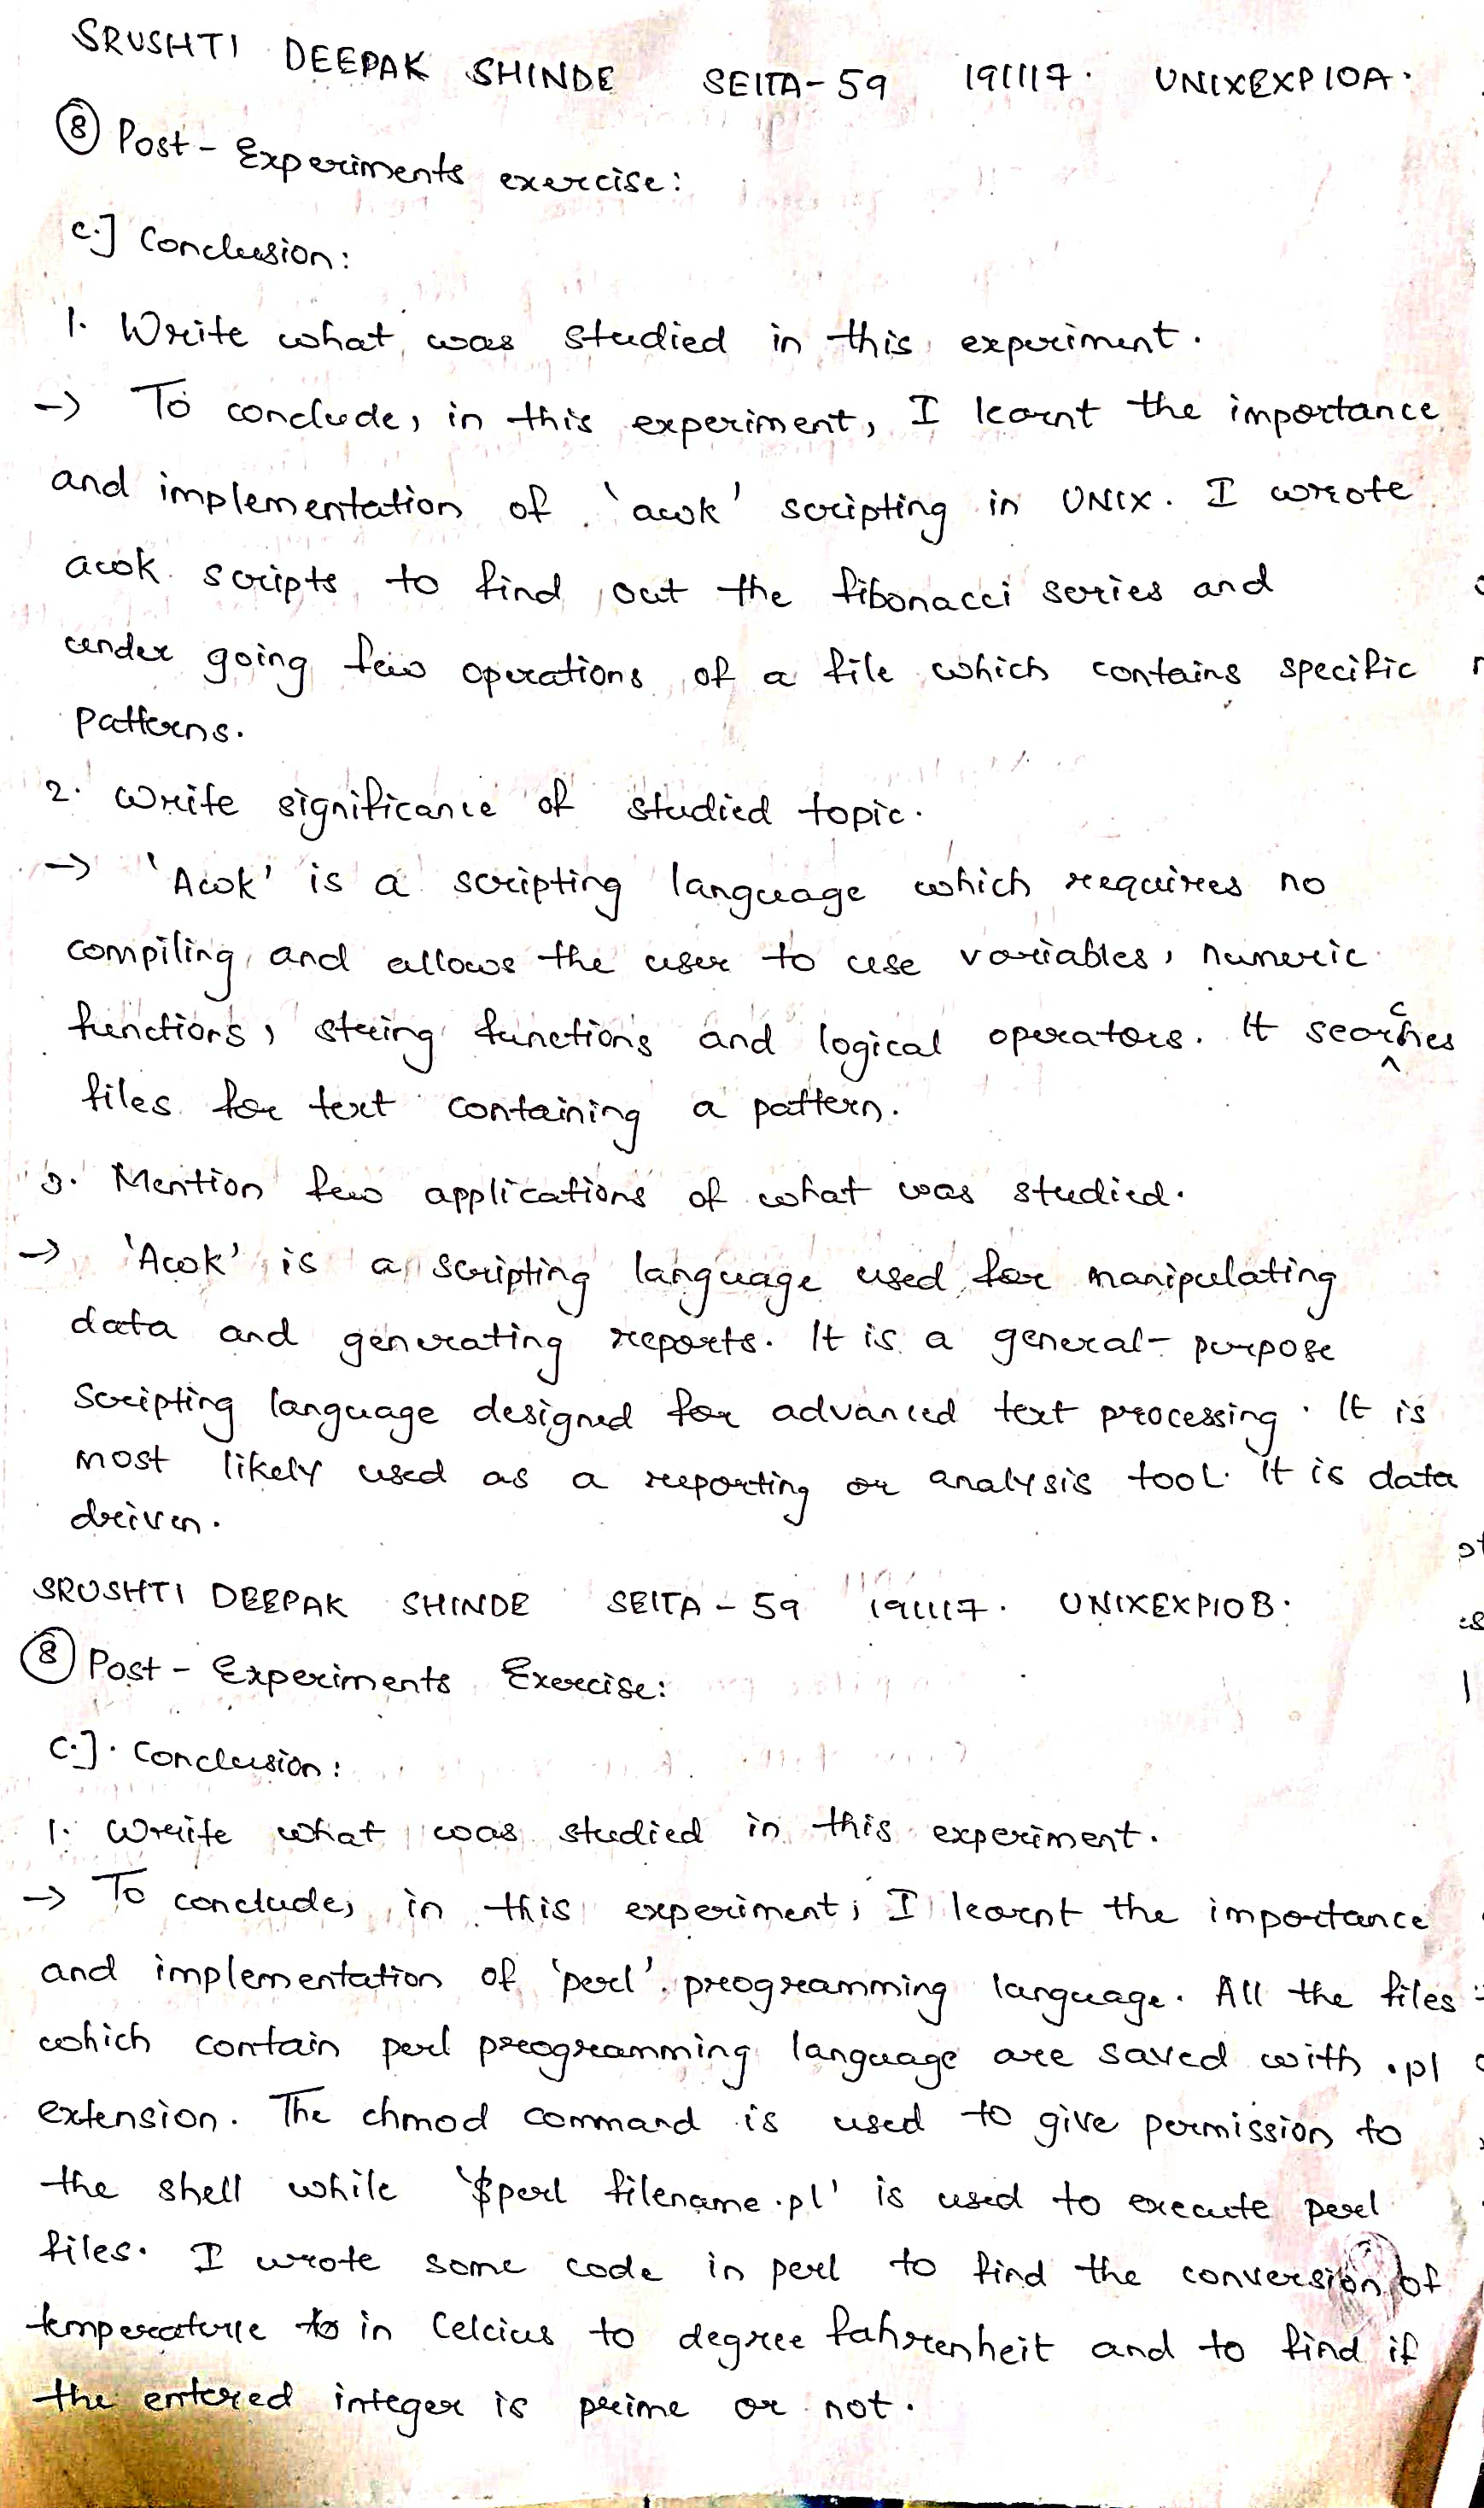 SRUSHTI DEEPAK SHINDE SEITA-59 191117. UNIXEXP10A.
⑧ Post-Experiments exercise:
c.] Conclusion:
1. Write what was studied in this experiment.
→ To conclude, in this experiment, I learnt the importance
and implementation of 'awk' scripting in UNIX. I wrote
awk scripts to find out the fibonacci series and
under going few operations of a file which contains specific
patterns.
2. Write significance of studied topic.
→ 'Awk' is a scripting language which requires no
compiling and allows the user to use variables, numeric
functions, string functions and logical operators. It searches
files for text containing a pattern.
3. Mention few applications of what was studied.
→ 'Awk' is a scripting language used for manipulating
data and generating reports. It is a general-purpose
scripting language designed for advanced text processing. It is
most likely used as a reporting or analysis tool. It is data
driven.
SRUSHTI DEEPAK SHINDE SEITA-59 191117. UNIXEXP10B.
⑧ Post-Experiments Exercise:
C.]. Conclusion:
1. Write what was studied in this experiment.
→ To conclude, in this experiment, I learnt the importance
and implementation of 'perl' programming language. All the files
which contain perl programming language are saved with .pl
extension. The chmod command is used to give permission to
the shell while '$perl filename.pl' is used to execute perl
files. I wrote some code in perl to find the conversion of
temperature in Celcius to degree fahrenheit and to find if
the entered integer is prime or not.